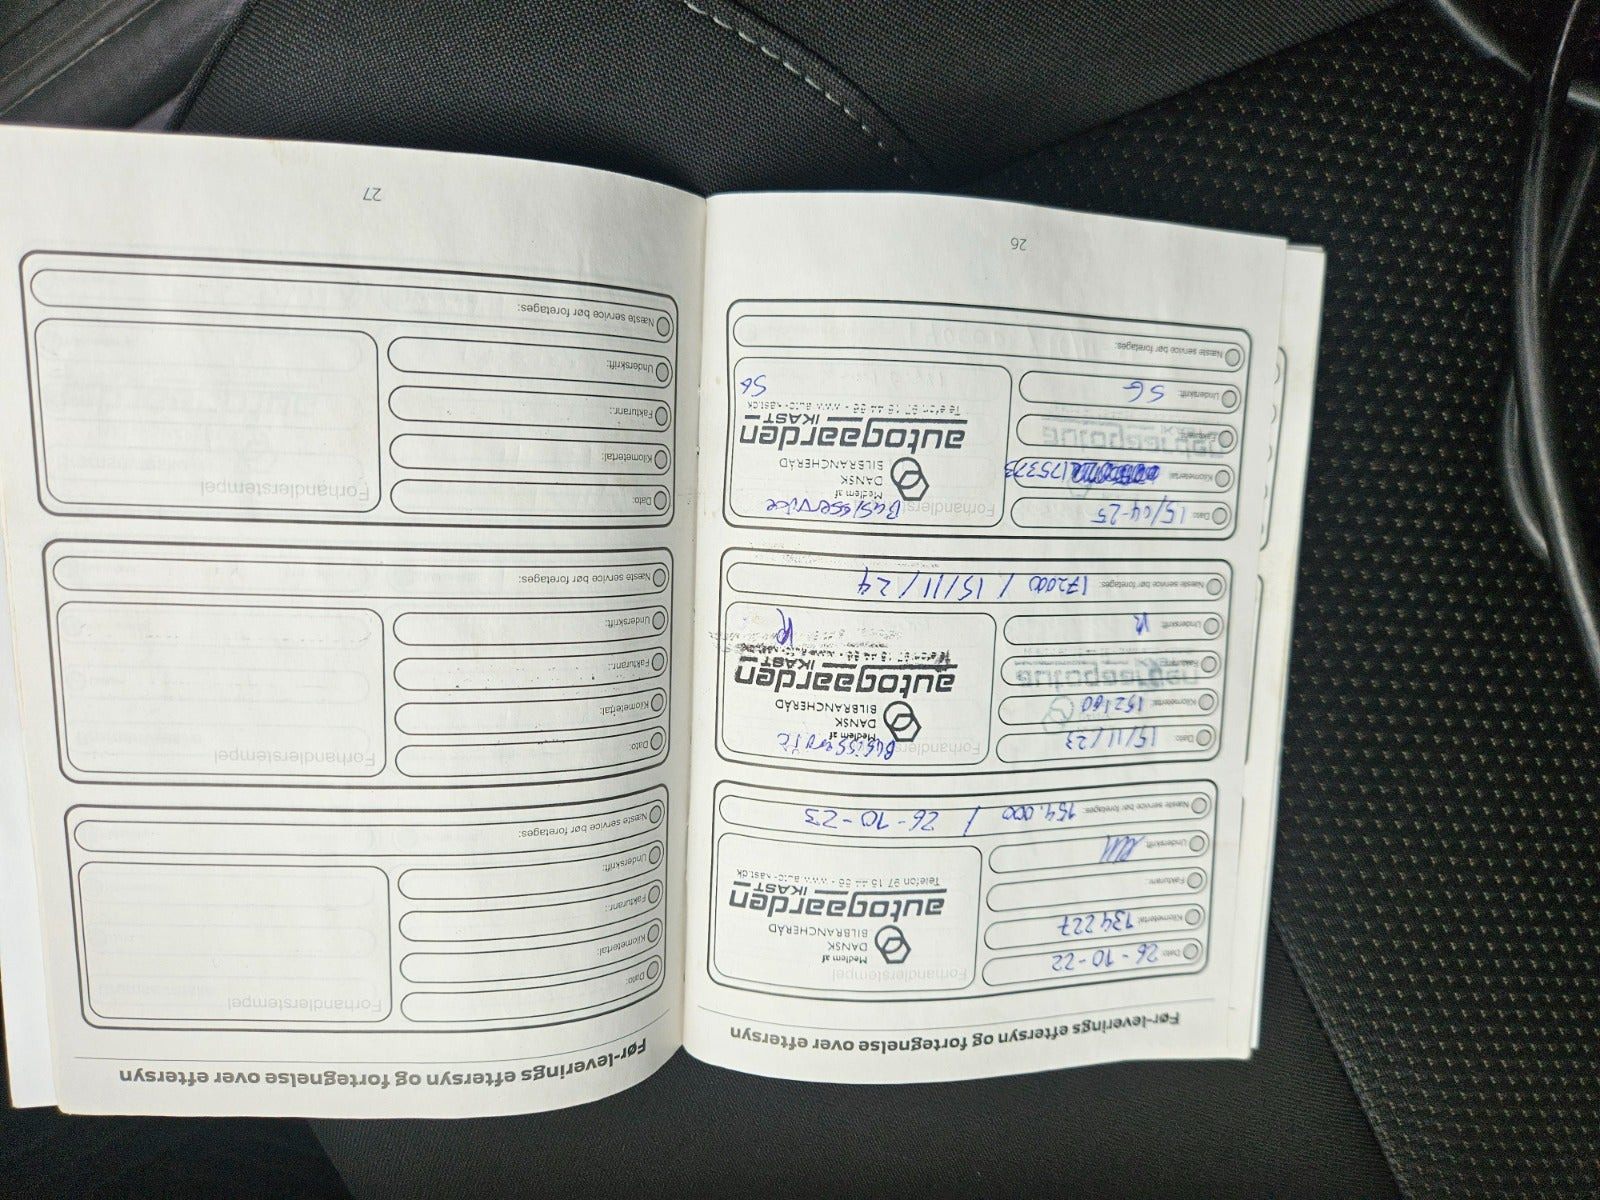 Før-leverings eftersyn og fortegnelse over eftersyn
Dato: 26-10-22
Kilometertal: 134227
Fakturanr.:
Underskrift:
Næste service bør foretages: 154.000 / 26-10-23
Forhandlerstempel
Medlem af
DANSK
BILBRANCHERÅD
autogaarden
IKAST
Telefon 97 15 44 66 - www.auto-ikast.dk
Dato: 15/11/23
Kilometertal: 152160
Fakturanr.:
Underskrift: R
Næste service bør foretages: 172000 / 15/11/24
Forhandlerstempel
Basisservice
Medlem af
DANSK
BILBRANCHERÅD
autogaarden
IKAST
R
Dato: 15/04-25
Kilometertal: 175373
Fakturanr.:
Underskrift: SG
Næste service bør foretages:
Forhandlerstempel
Basisservice
Medlem af
DANSK
BILBRANCHERÅD
autogaarden
IKAST
Telefon 97 15 44 66 - www.auto-ikast.dk
SG
26
Før-leverings eftersyn og fortegnelse over eftersyn
Dato:
Kilometertal:
Fakturanr.:
Underskrift:
Næste service bør foretages:
Forhandlerstempel
Dato:
Kilometertal:
Fakturanr.:
Underskrift:
Næste service bør foretages:
Forhandlerstempel
Dato:
Kilometertal:
Fakturanr.:
Underskrift:
Næste service bør foretages:
Forhandlerstempel
27